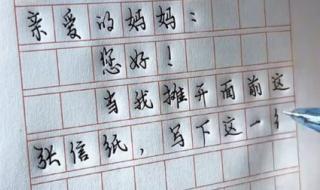 亲爱的妈妈：
您好！
当我摊开面前这
张信纸，写下这一